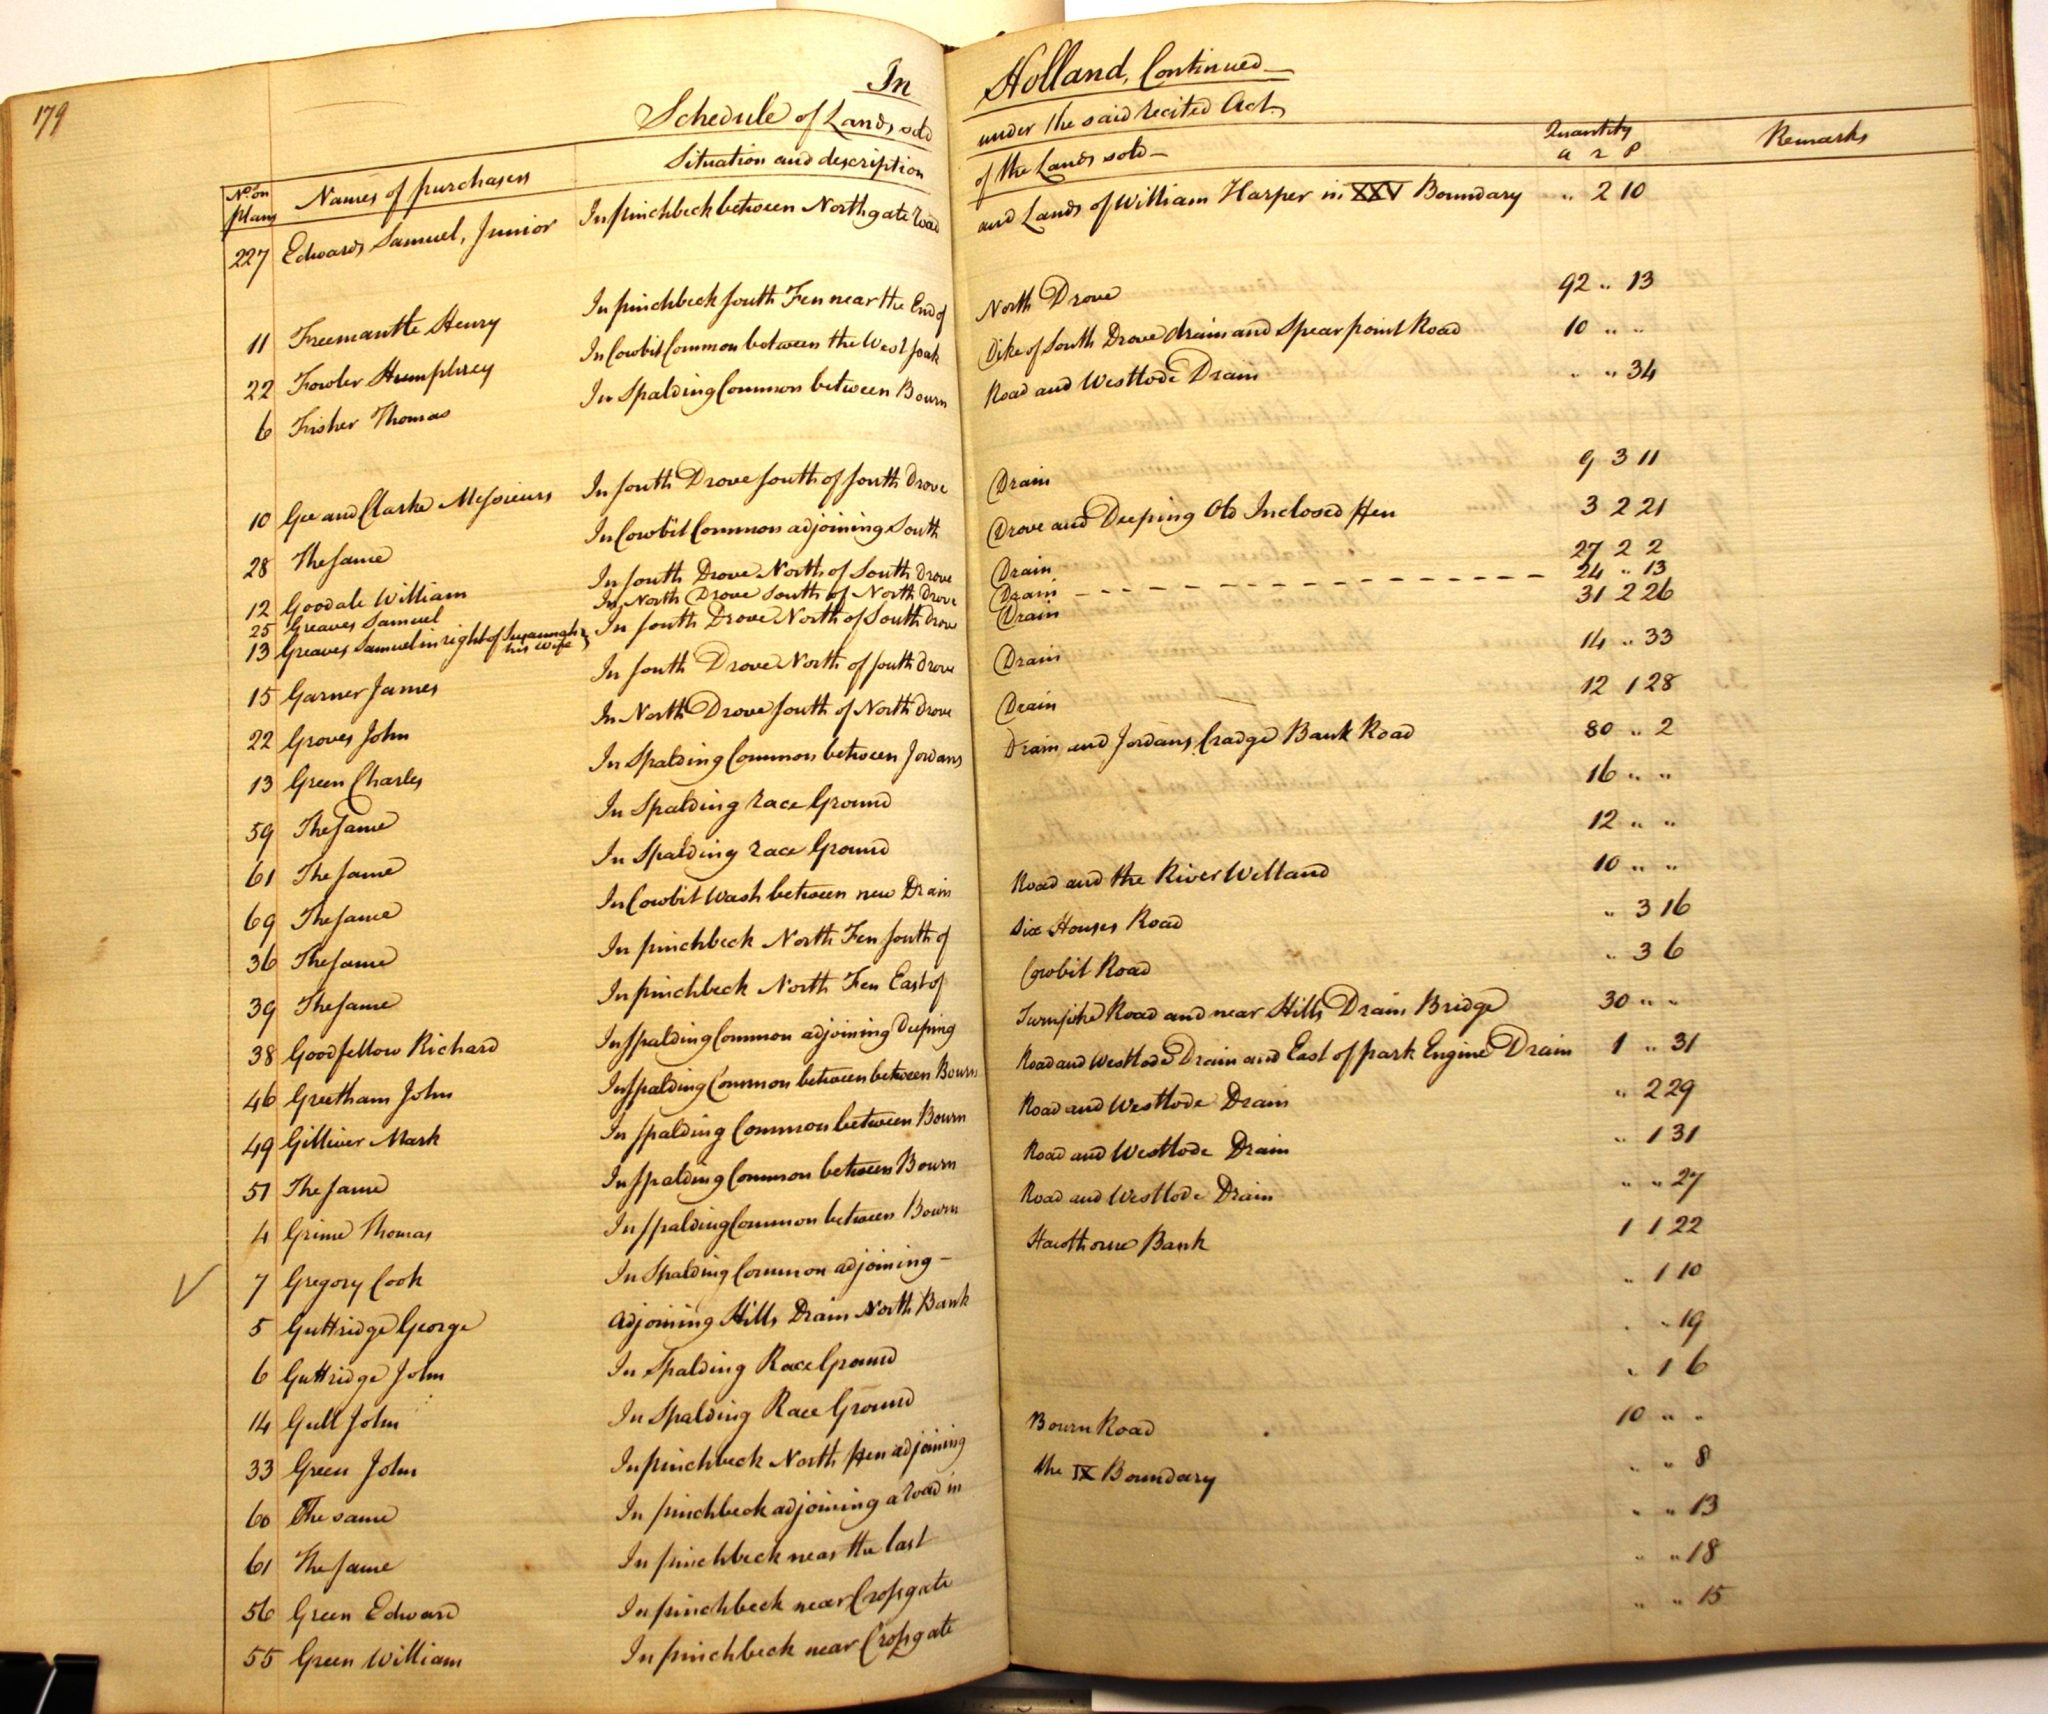 179
In Holland, Continued
Schedule of Lands sold under the said recited Act
No. on plans Names of purchasers Situation and description of the Lands sold Quantity a r p Remarks
227 Edwards Samuel, Junior In pinchbeck between Northgate road and Lands of William Harper in XXV Boundary " 2 10
11 Freemantle Henry In pinchbeck South Fen near the End of North Drove 92 " 13
22 Fowler Humphrey In Cowbit Common between the West soak Dike of South Drove drain and Spearpoint Road 10 " "
6 Fisher Thomas In Spalding Common between Bourn Road and Westlode Drain " " 34
10 Gee and Clarke Messieurs In South Drove South of South Drove Drain 9 3 11
28 The same In Cowbit Common adjoining South Drove and Deeping Old Inclosed Fen 3 2 21
12 Goodale William In South Drove North of South Drove Drain 27 2 2
25 Greaves Samuel In North Drove South of North Drove Drain 24 " 13
13 Greaves Samuel in right of Susannah his wife In South Drove North of South Drove Drain 31 2 26
15 Garner James In South Drove North of South Drove Drain 14 " 33
22 Groves John In North Drove South of North Drove Drain 12 1 28
13 Green Charles In Spalding Common between Jordans Drain and Jordans Cradge Bank Road 80 " 2
59 The same In Spalding race Ground 16 " "
61 The same In Spalding race Ground 12 " "
69 The same In Cowbit Wash between new Drain Road and the River Welland 10 " "
36 The same In pinchbeck North Fen South of Six Houses Road " 3 16
39 The same In pinchbeck North Fen East of Cowbit Road " 3 6
38 Goodfellow Richard In Spalding Common adjoining Deeping Turnpike Road and near Hills Drain Bridge 30 " "
46 Greetham John In Spalding Common between between Bourn Road and Westlode Drain and East of park Engine Drain 1 " 31
49 Gilliver Mark In Spalding Common between Bourn Road and Westlode Drain " 2 29
51 The same In Spalding Common between Bourn Road and Westlode Drain " 1 31
4 Grime Thomas In Spalding Common between Bourn Road and Westlode Drain " " 27
7 Gregory Cook In Spalding Common adjoining – Hawthorne Bank 1 1 22
5 Guttridge George Adjoining Hills Drain North Bank " 1 10
6 Guttridge John In Spalding Race Ground " " 19
14 Gull John In Spalding Race Ground " 1 6
33 Green John In pinchbeck North Fen adjoining Bourn Road 10 " "
60 The same In pinchbeck adjoining a road in the IX Boundary " " 8
61 The same In pinchbeck near the last " " 13
56 Green Edward In pinchbeck near Crossgate " " 18
55 Green William In pinchbeck near Crossgate " " 15